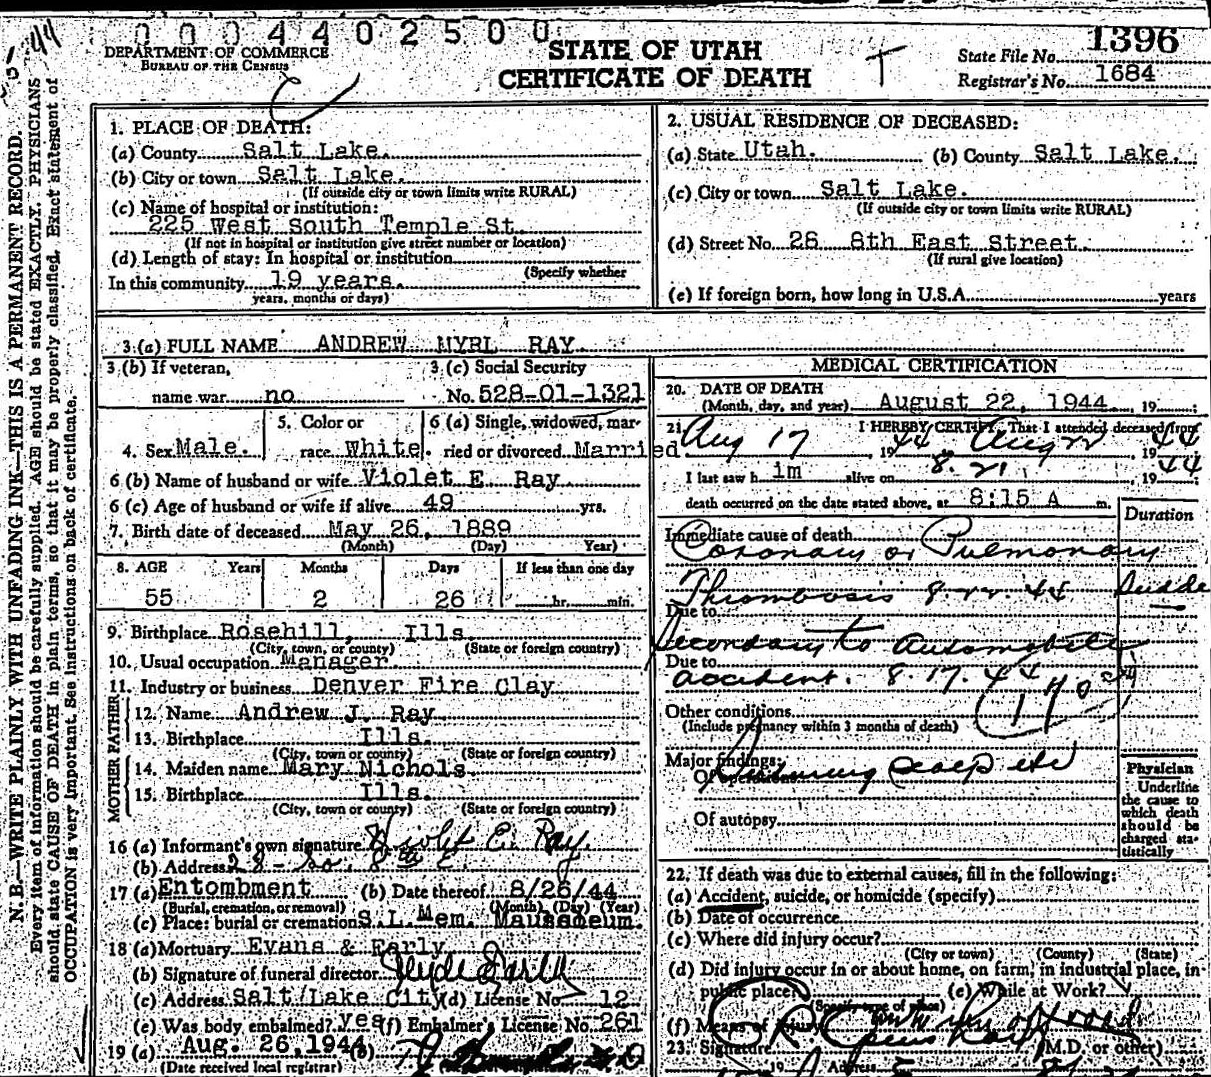 0 0 0 4 4 0 2 5 0 0 0
DEPARTMENT OF COMMERCE
BUREAU OF THE CENSUS
STATE OF UTAH
CERTIFICATE OF DEATH
State File No. 1396
Registrar's No. 1684
N. B.—WRITE PLAINLY WITH UNFADING INK—THIS IS A PERMANENT RECORD.
Every item of information should be carefully supplied. AGE should be stated EXACTLY. PHYSICIANS
should state CAUSE OF DEATH in plain terms, so that it may be properly classified. Exact statement of
OCCUPATION is very important. See instructions on back of certificate.
1. PLACE OF DEATH:
(a) County Salt Lake.
(b) City or town Salt Lake.
(If outside city or town limits write RURAL)
(c) Name of hospital or institution:
225 West South Temple St.
(If not in hospital or institution give street number or location)
(d) Length of stay: In hospital or institution
(Specify whether
In this community 19 years.
years, months or days)
2. USUAL RESIDENCE OF DECEASED:
(a) State Utah. (b) County Salt Lake.
(c) City or town Salt Lake.
(If outside city or town limits write RURAL)
(d) Street No. 28 8th East Street.
(If rural give location)
(e) If foreign born, how long in U.S.A. years
3 (a) FULL NAME ANDREW MYRL RAY
3 (b) If veteran, 3 (c) Social Security
name war no No. 528-01-1321
4. Sex Male. 5. Color or race White. 6 (a) Single, widowed, married or divorced Married.
6 (b) Name of husband or wife Violet E. Ray
6 (c) Age of husband or wife if alive 49 yrs.
7. Birth date of deceased May 26, 1889
(Month) (Day) Year)
8. AGE Years Months Days If less than one day
55 2 26 hr. min.
9. Birthplace Rosehill, Ills.
(City, town, or county) (State or foreign country)
10. Usual occupation Manager.
11. Industry or business Denver Fire Clay
FATHER
12. Name Andrew J. Ray
13. Birthplace Ills.
(City, town or county) (State or foreign country)
MOTHER
14. Maiden name Mary Nichols
15. Birthplace Ills.
(City, town or county) (State or foreign country)
16 (a) Informant's own signature Violet E. Ray.
(b) Address 28 - So. 8th E.
17 (a) Entombment (b) Date thereof 8/26/44
(Burial, cremation, or removal) (Month) (Day) (Year)
(c) Place: burial or cremation S.L. Mem. Mausoleum.
18 (a) Mortuary Evans & Early
(b) Signature of funeral director
(c) Address Salt Lake City (d) License No. 12
(e) Was body embalmed? yes (f) Embalmer's License No. 261
19 (a) Aug. 26, 1944 (b)
(Date received local registrar)
MEDICAL CERTIFICATION
20. DATE OF DEATH
(Month, day, and year) August 22, 1944 , 19 ;
21. I HEREBY CERTIFY, That I attended deceased from
Aug 17 , 1944 to Aug 22 , 1944
I last saw him alive on 8. 21 , 1944
death occurred on the date stated above, at 8:15 A m.
Duration
Immediate cause of death
Coronary or Pulmonary
Thrombosis 8-22-44 Sudde
Due to
Secondary to Automobile
Due to
accident. 8.17.44
Other conditions
(Include pregnancy within 3 months of death)
Major findings:
Of operations Suturing scalp etc
Of autopsy
Physician
Underline
the cause to
which death
should be
charged sta-
tistically
22. If death was due to external causes, fill in the following:
(a) Accident, suicide, or homicide (specify)
(b) Date of occurrence
(c) Where did injury occur?
(City or town) (County) (State)
(d) Did injury occur in or about home, on farm, in industrial place, in
public place? (e) While at Work?
(Specify type of place)
(f) Means of injury Auto run off road
23. Signature (M.D. or other)